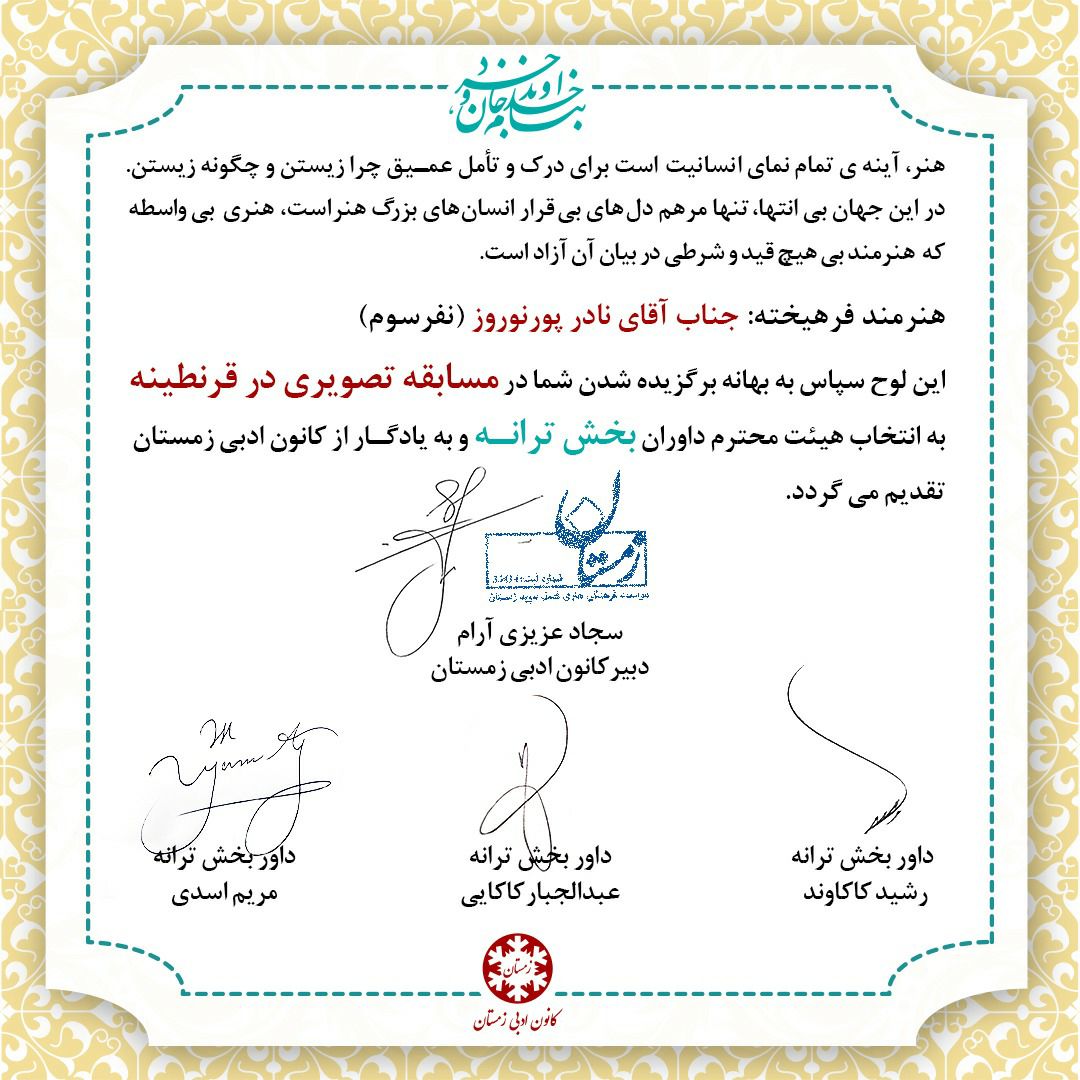 بنام خداوند جان و خرد
هنر، آینه ی تمام نمای انسانیت است برای درک و تأمل عمـیق چرا زیستن و چگونه زیستن.
در این جهان بی انتها، تنها مرهم دل های بی قرار انسان‌های بزرگ هنر است، هنری بی واسطه
که هنرمند بی هیچ قید و شرطی در بیان آن آزاد است.
هنرمند فرهیخته: جناب آقای نادر پورنوروز (نفرسوم)
این لوح سپاس به بهانه برگزیده شدن شما در مسابقه تصویری در قرنطینه
به انتخاب هیئت محترم داوران بخش ترانــه و به یادگــار از کانون ادبی زمستان
تقدیم می گردد.
زمستان
شماره ثبت:
موسسه فرهنگی هنری زمستان
سجاد عزیزی آرام
دبیر کانون ادبی زمستان
داور بخش ترانه
رشید کاکاوند
داور بخش ترانه
عبدالجبار کاکایی
داور بخش ترانه
مریم اسدی
زمستان
کانون ادبی زمستان